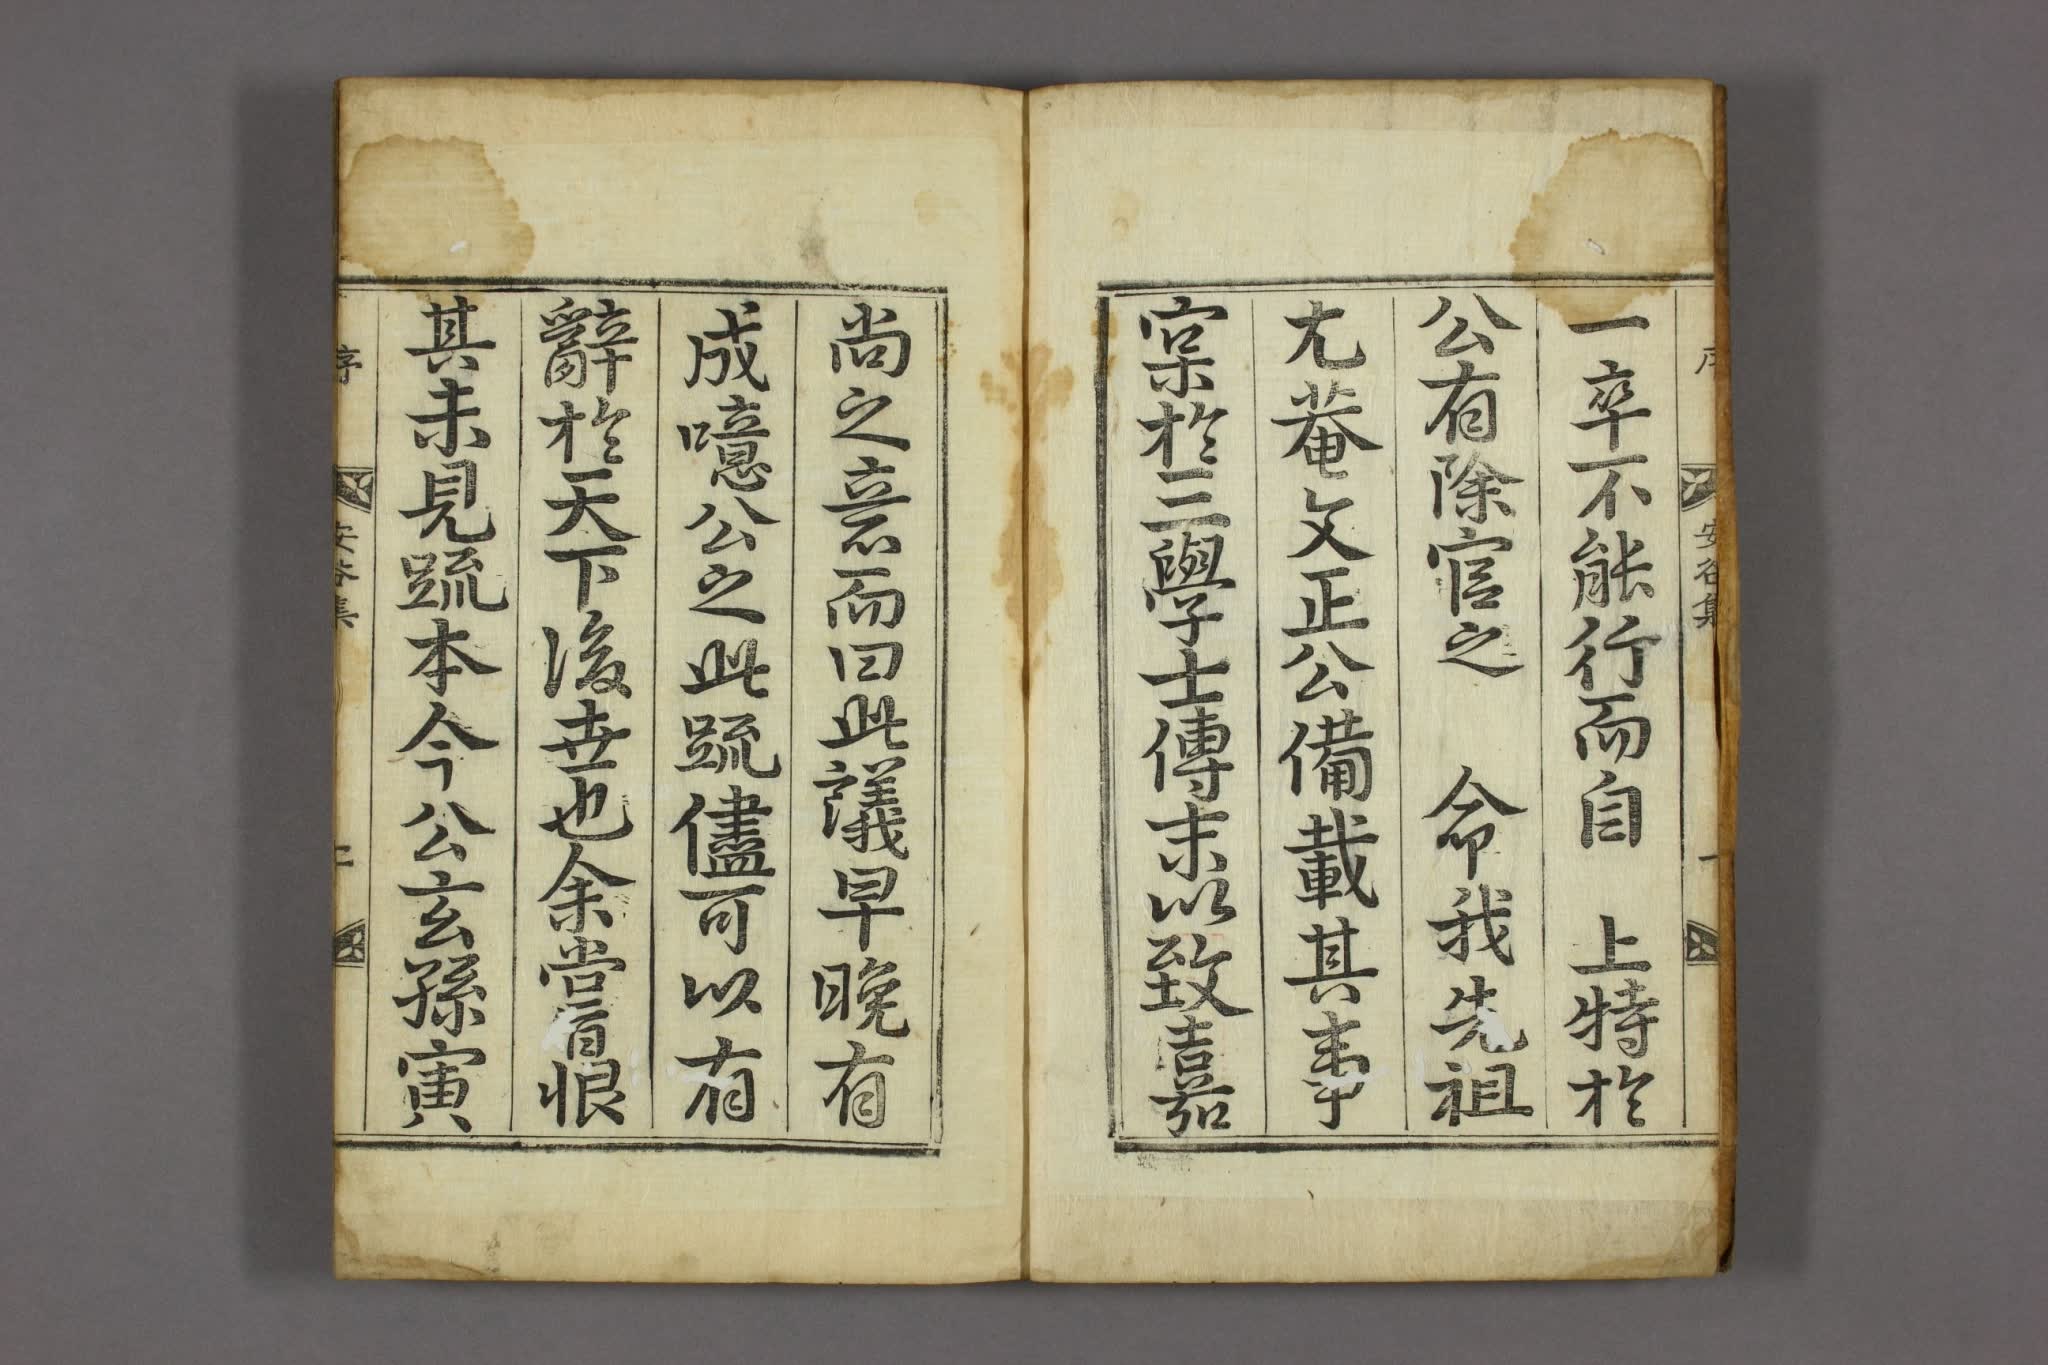 序
安谷集
一
一卒不能行而自 上特於
公有除官之 命我先祖
尤菴文正公備載其事
寀於三學士傳末以致嘉
尚之意而曰此議早晩有
成噫公之此疏儘可以有
辭於天下後世也余嘗恨
其未見疏本今公玄孫寅
序
安谷集
二